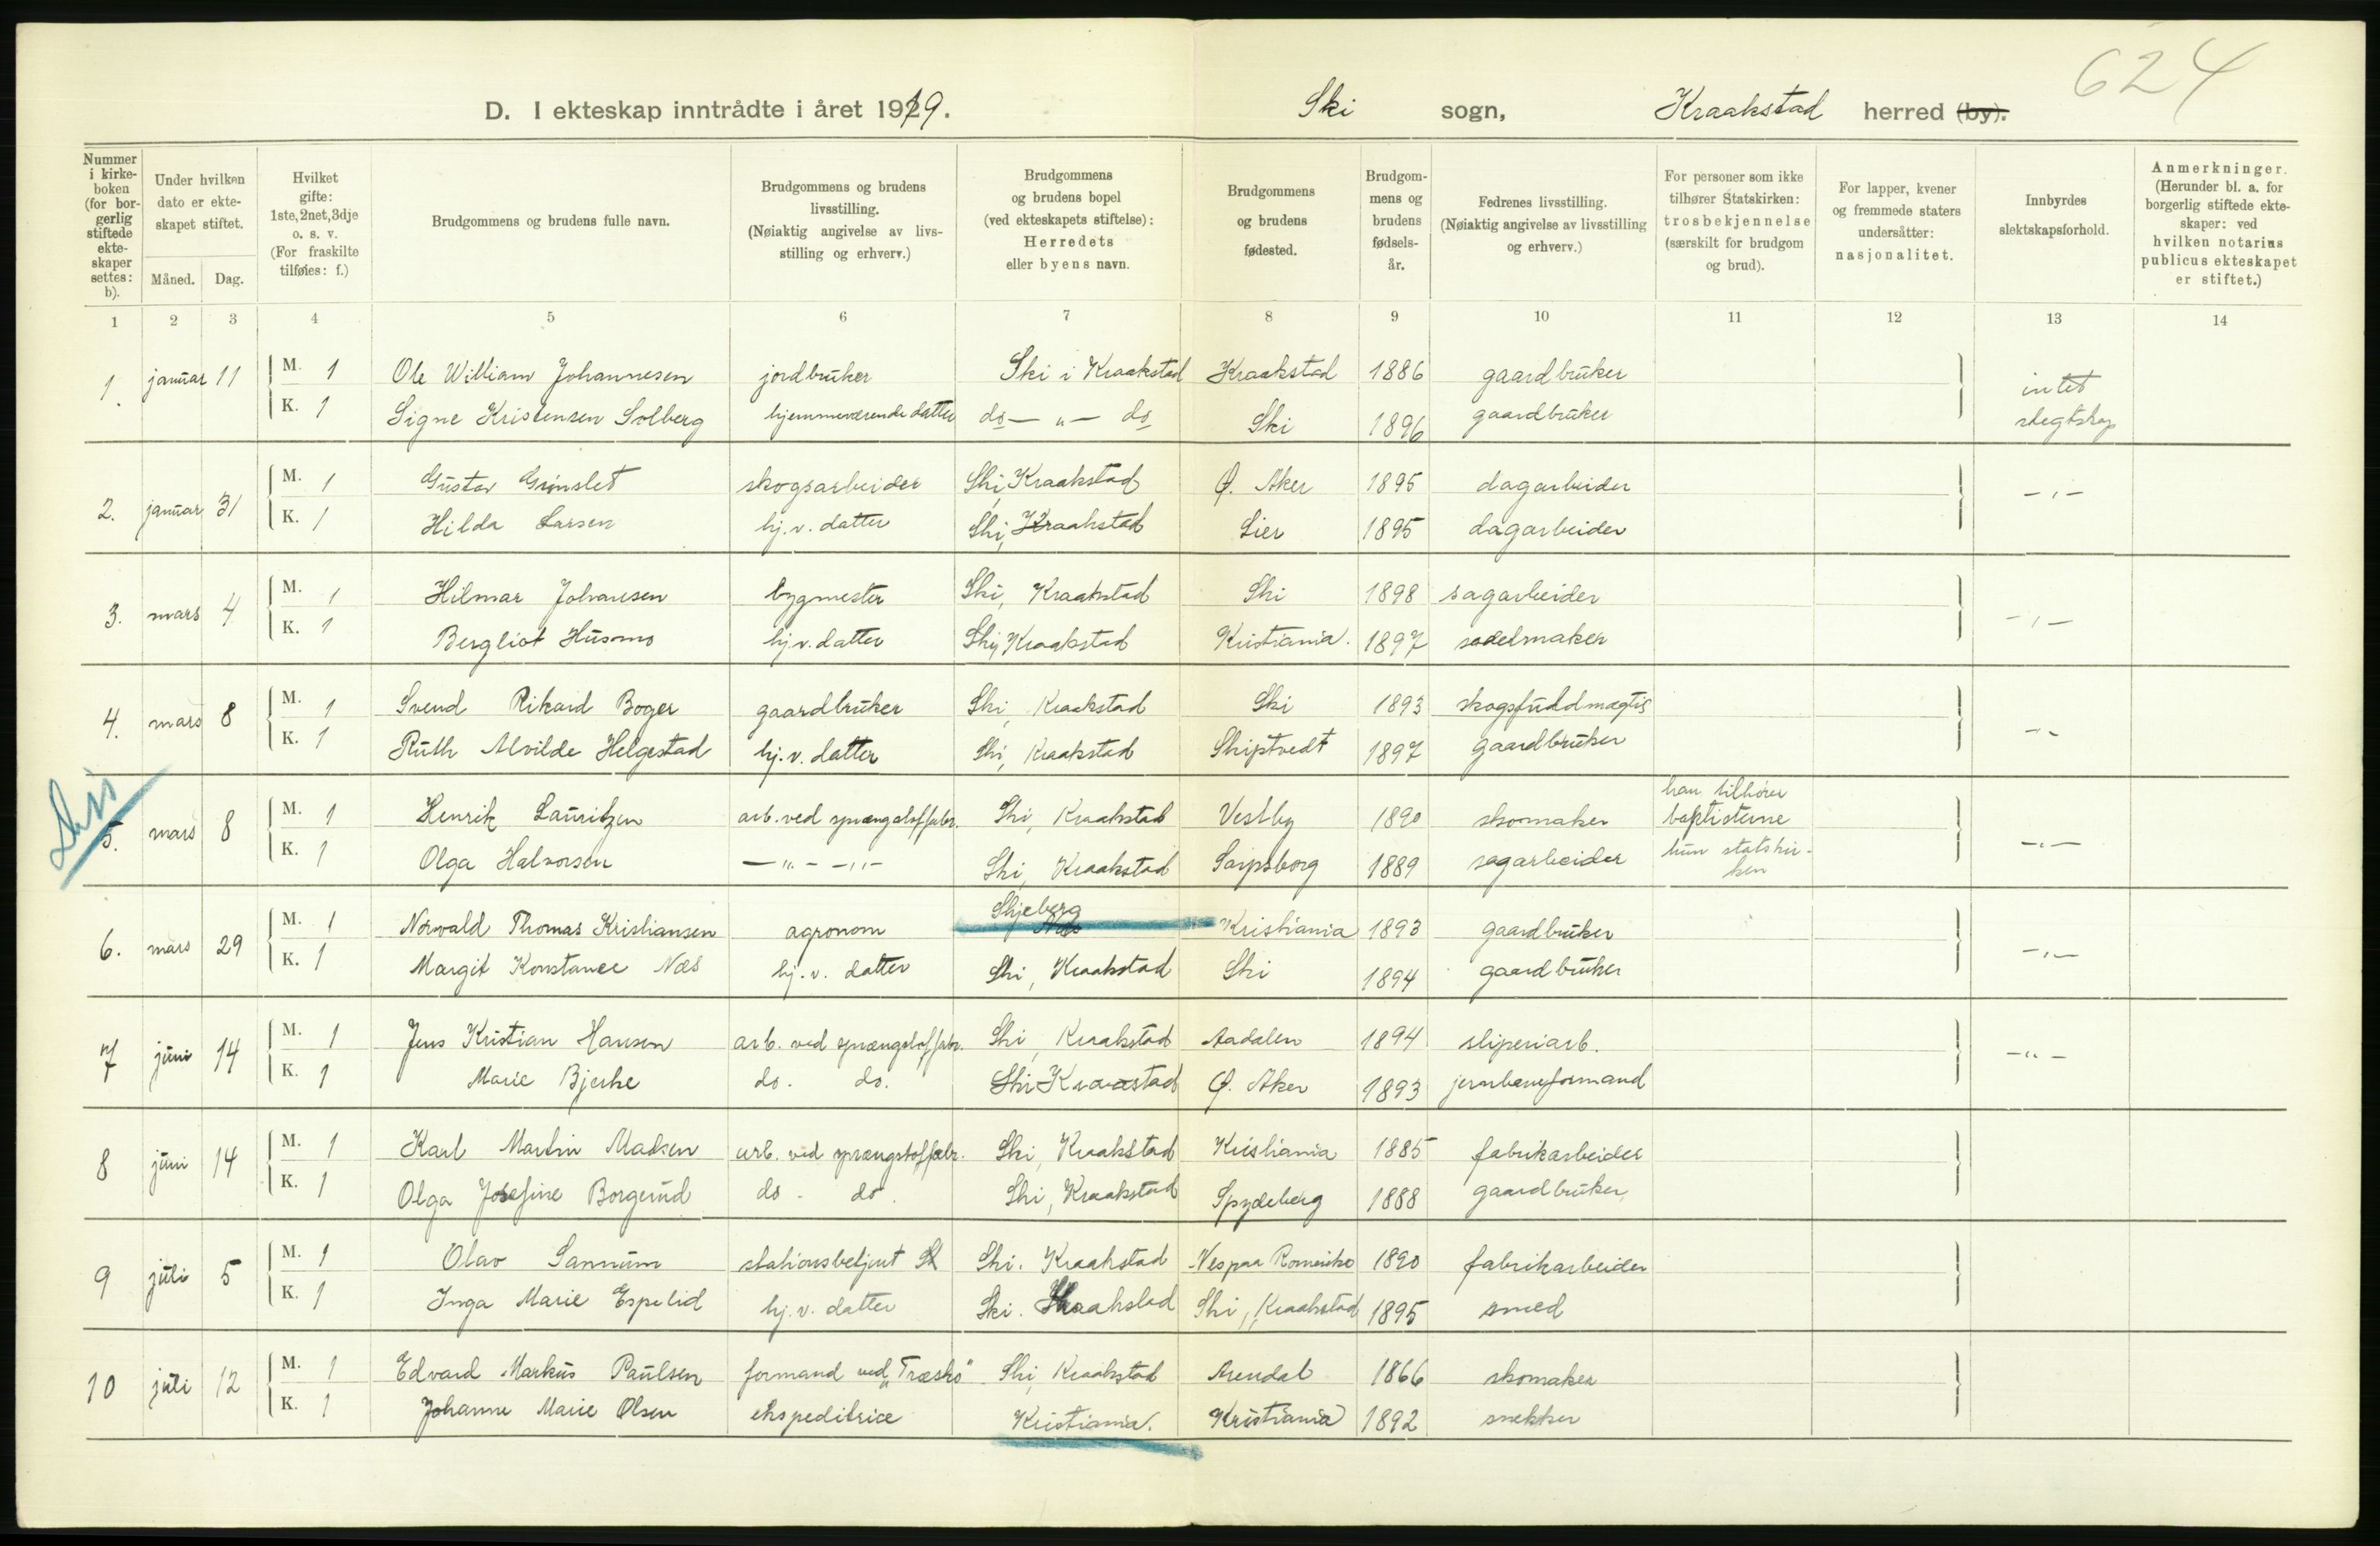 624
D. I ekteskap inntrådte i året 1919. Ski sogn, Kraakstad herred (by).
Nummer i kirke-boken (for bor-gerlig stiftede ekte-skaper settes: b).
Under hvilken dato er ekte-skapet stiftet.
Måned. Dag.
Hvilket gifte: 1ste, 2net, 3dje o. s. v. (For fraskilte tilføies: f.)
Brudgommens og brudens fulle navn.
Brudgommens og brudens livsstilling. (Nøiaktig angivelse av livs-stilling og erhverv.)
Brudgommens og brudens bopel (ved ekteskapets stiftelse): Herredets eller byens navn.
Brudgommens og brudens fødested.
Brudgom-mens og brudens fødsels-år.
Fedrenes livsstilling. (Nøiaktig angivelse av livsstilling og erhverv.)
For personer som ikke tilhører Statskirken: trosbekjennelse (særskilt for brudgom og brud).
For lapper, kvener og fremmede staters undersåtter: nasjonalitet.
Innbyrdes slektskapsforhold.
Anmerkninger. (Herunder bl. a. for borgerlig stiftede ekte-skaper: ved hvilken notarius publicus ekteskapet er stiftet.)
1 2 3 4 5 6 7 8 9 10 11 12 13 14
1. januar 11 M. 1 Ole William Johannesen jordbruker Ski i Kraakstad Kraakstad 1886 gaardbruker intet
K. 1 Signe Kristensen Solberg hjemmeværende datter do — " — do Ski 1896 gaardbruker slegtskap
2. januar 31 M. 1 Gustav Grinslet skogsarbeider Ski, Kraakstad Ø. Aker 1895 dagarbeider — " —
K. 1 Hilda Larsen hj. v. datter Ski, Kraakstad Lier 1895 dagarbeider
3. mars 4 M. 1 Hilmar Johansen bygmester Ski, Kraakstad Ski 1898 sagarbeider — " —
K. 1 Bergliot Husmo hj. v. datter Ski, Kraakstad Kristiania. 1897 sadelmaker
4. mars 8 M. 1 Svend Rikard Boger gaardbruker Ski, Kraakstad Ski 1893 skogsfuldmægtig — " —
K. 1 Ruth Alvilde Helgestad hj. v. datter Ski, Kraakstad Skiptvedt 1897 gaardbruker
Ski
5. mars 8 M. 1 Henrik Lauritzen arb. ved sprængstoffabr. Ski, Kraakstad Vestby 1890 skomaker han tilhører baptisterne — " —
K. 1 Olga Halvorsen — " — — " — Ski, Kraakstad Sarpsborg 1889 sagarbeider hun statskir-ken
6. mars 29 M. 1 Norvald Thomas Kristiansen agronom Skjeberg Kristiania 1893 gaardbruker — " —
K. 1 Margit Konstance Næs hj. v. datter Ski, Kraakstad Ski 1894 gaardbruker
7 juni 14 M. 1 Jens Kristian Hansen arb. ved sprængstoffabr. Ski, Kraakstad Aadalen 1894 sliperiarb. — " —
K. 1 Marie Bjerke do. do. Ski Kraastad Ø. Aker 1893 jernbaneformand
8 juni 14 M. 1 Karl Martin Madsen arb. ved sprængstoffabr. Ski, Kraakstad Kristiania 1885 fabrikarbeider
K. 1 Olga Josefine Borgerud do. do. Ski, Kraakstad Spydeberg 1888 gaardbruker
9 juli 5 M. 1 Olav Sannum stationsbetjent Ski. Kraakstad Nes paa Romerike 1890 fabrikarbeider
K. 1 Inga Marie Espelid hj. v. datter Ski. Kraakstad Ski, Kraakstad 1895 smed
10 juli 12 M. 1 Edvard Markus Paulsen formand ved „Træsko" Ski, Kraakstad Arendal 1866 skomaker
K. 1 Johanne Marie Olsen ekspeditrice Kristiania. Kristiania 1892 snekker